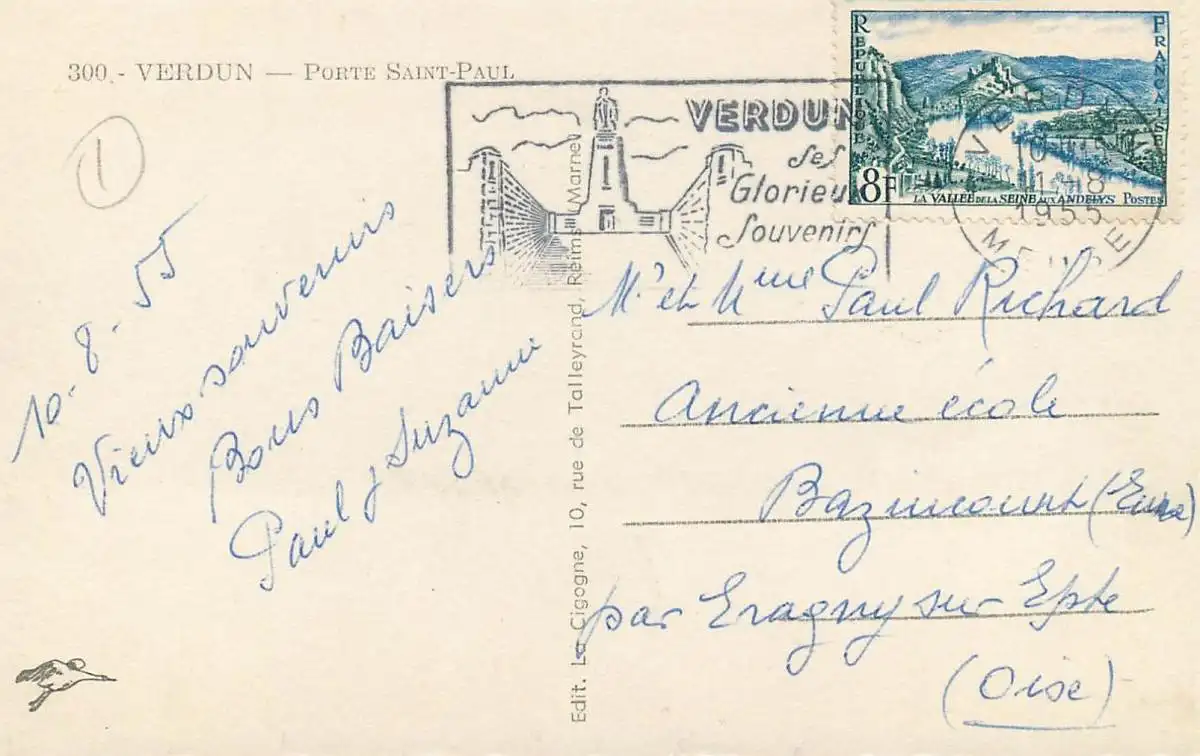 300. - VERDUN — PORTE SAINT-PAUL
1
VERDUN
ses
Glorieux
Souvenirs
REPUBLIQUE FRANÇAISE
8F
LA VALLÉE DE LA SEINE AUX ANDELYS POSTES
VERDUN
11-8
1955
MEUSE
10-8-55
Vieux souvenirs
Bons Baisers
Paul & Suzanne
Edit. La Cigogne, 10, rue de Talleyrand, Reims (Marne)
Mr et Mme Paul Richard
Ancienne école
Bazincourt (Eure)
par Eragny sur Epte
(Oise)